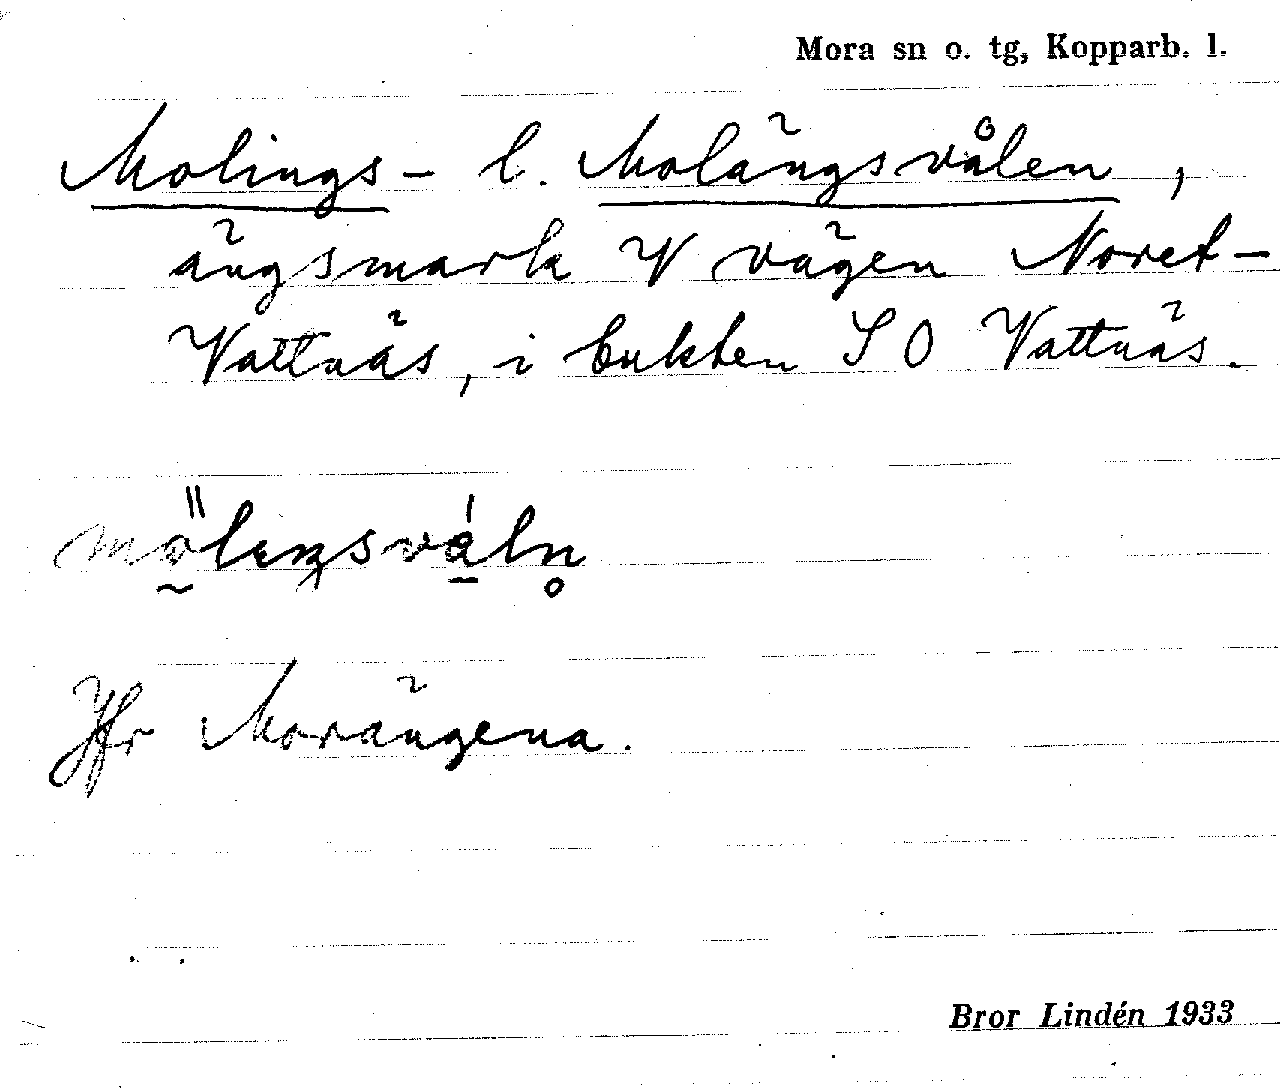 Mora sn o. tg, Kopparb. l.
Molings- l. Molängsvålen,
ängsmark V vägen Noret-
Vattnäs, i bukten SO Vattnäs.
Jfr Morängena.
Bror Lindén 1933